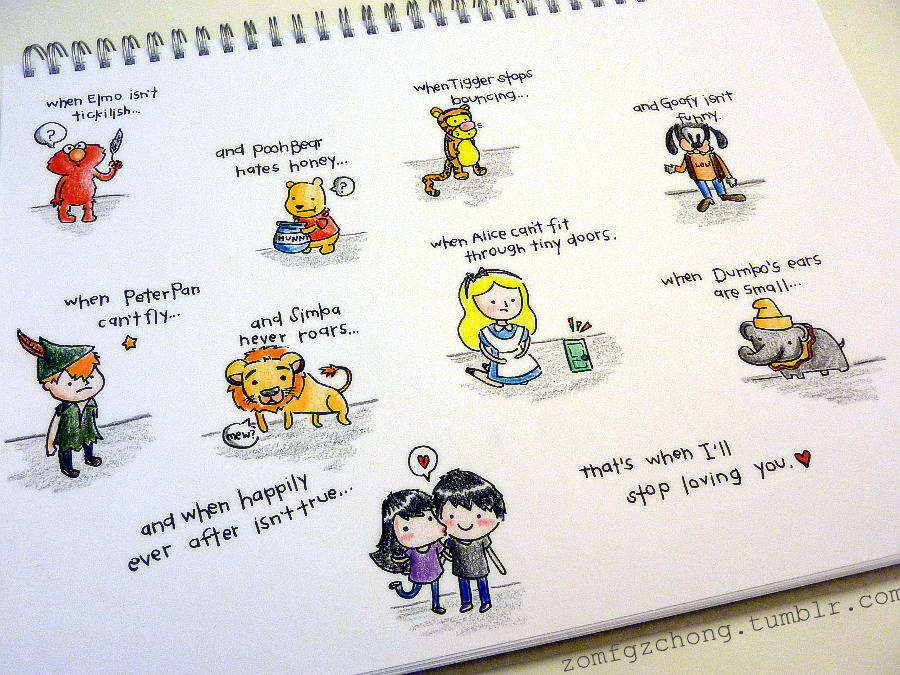 when Elmo isn't
tickilish...
?
and Pooh Bear
hates honey...
?
HUNNY
when Tigger stops
bouncing...
and Goofy isn't
funny.
LOW
when Peter Pan
can't fly...
and Simba
never roars...
mew?
when Alice can't fit
through tiny doors.
when Dumbo's ears
are small...
and when happily
ever after isn't true...
that's when I'll
stop loving you.
zomfgzchong.tumblr.com